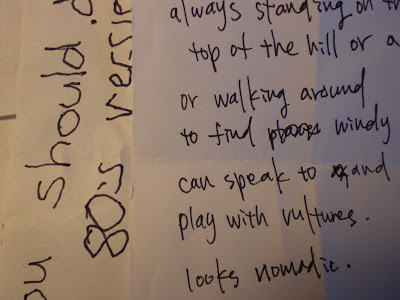 always standing on th
top of the hill or a
or walking around
to find places windy
can speak to and
play with vultures.
looks nomadic.
ou should d
80's versio